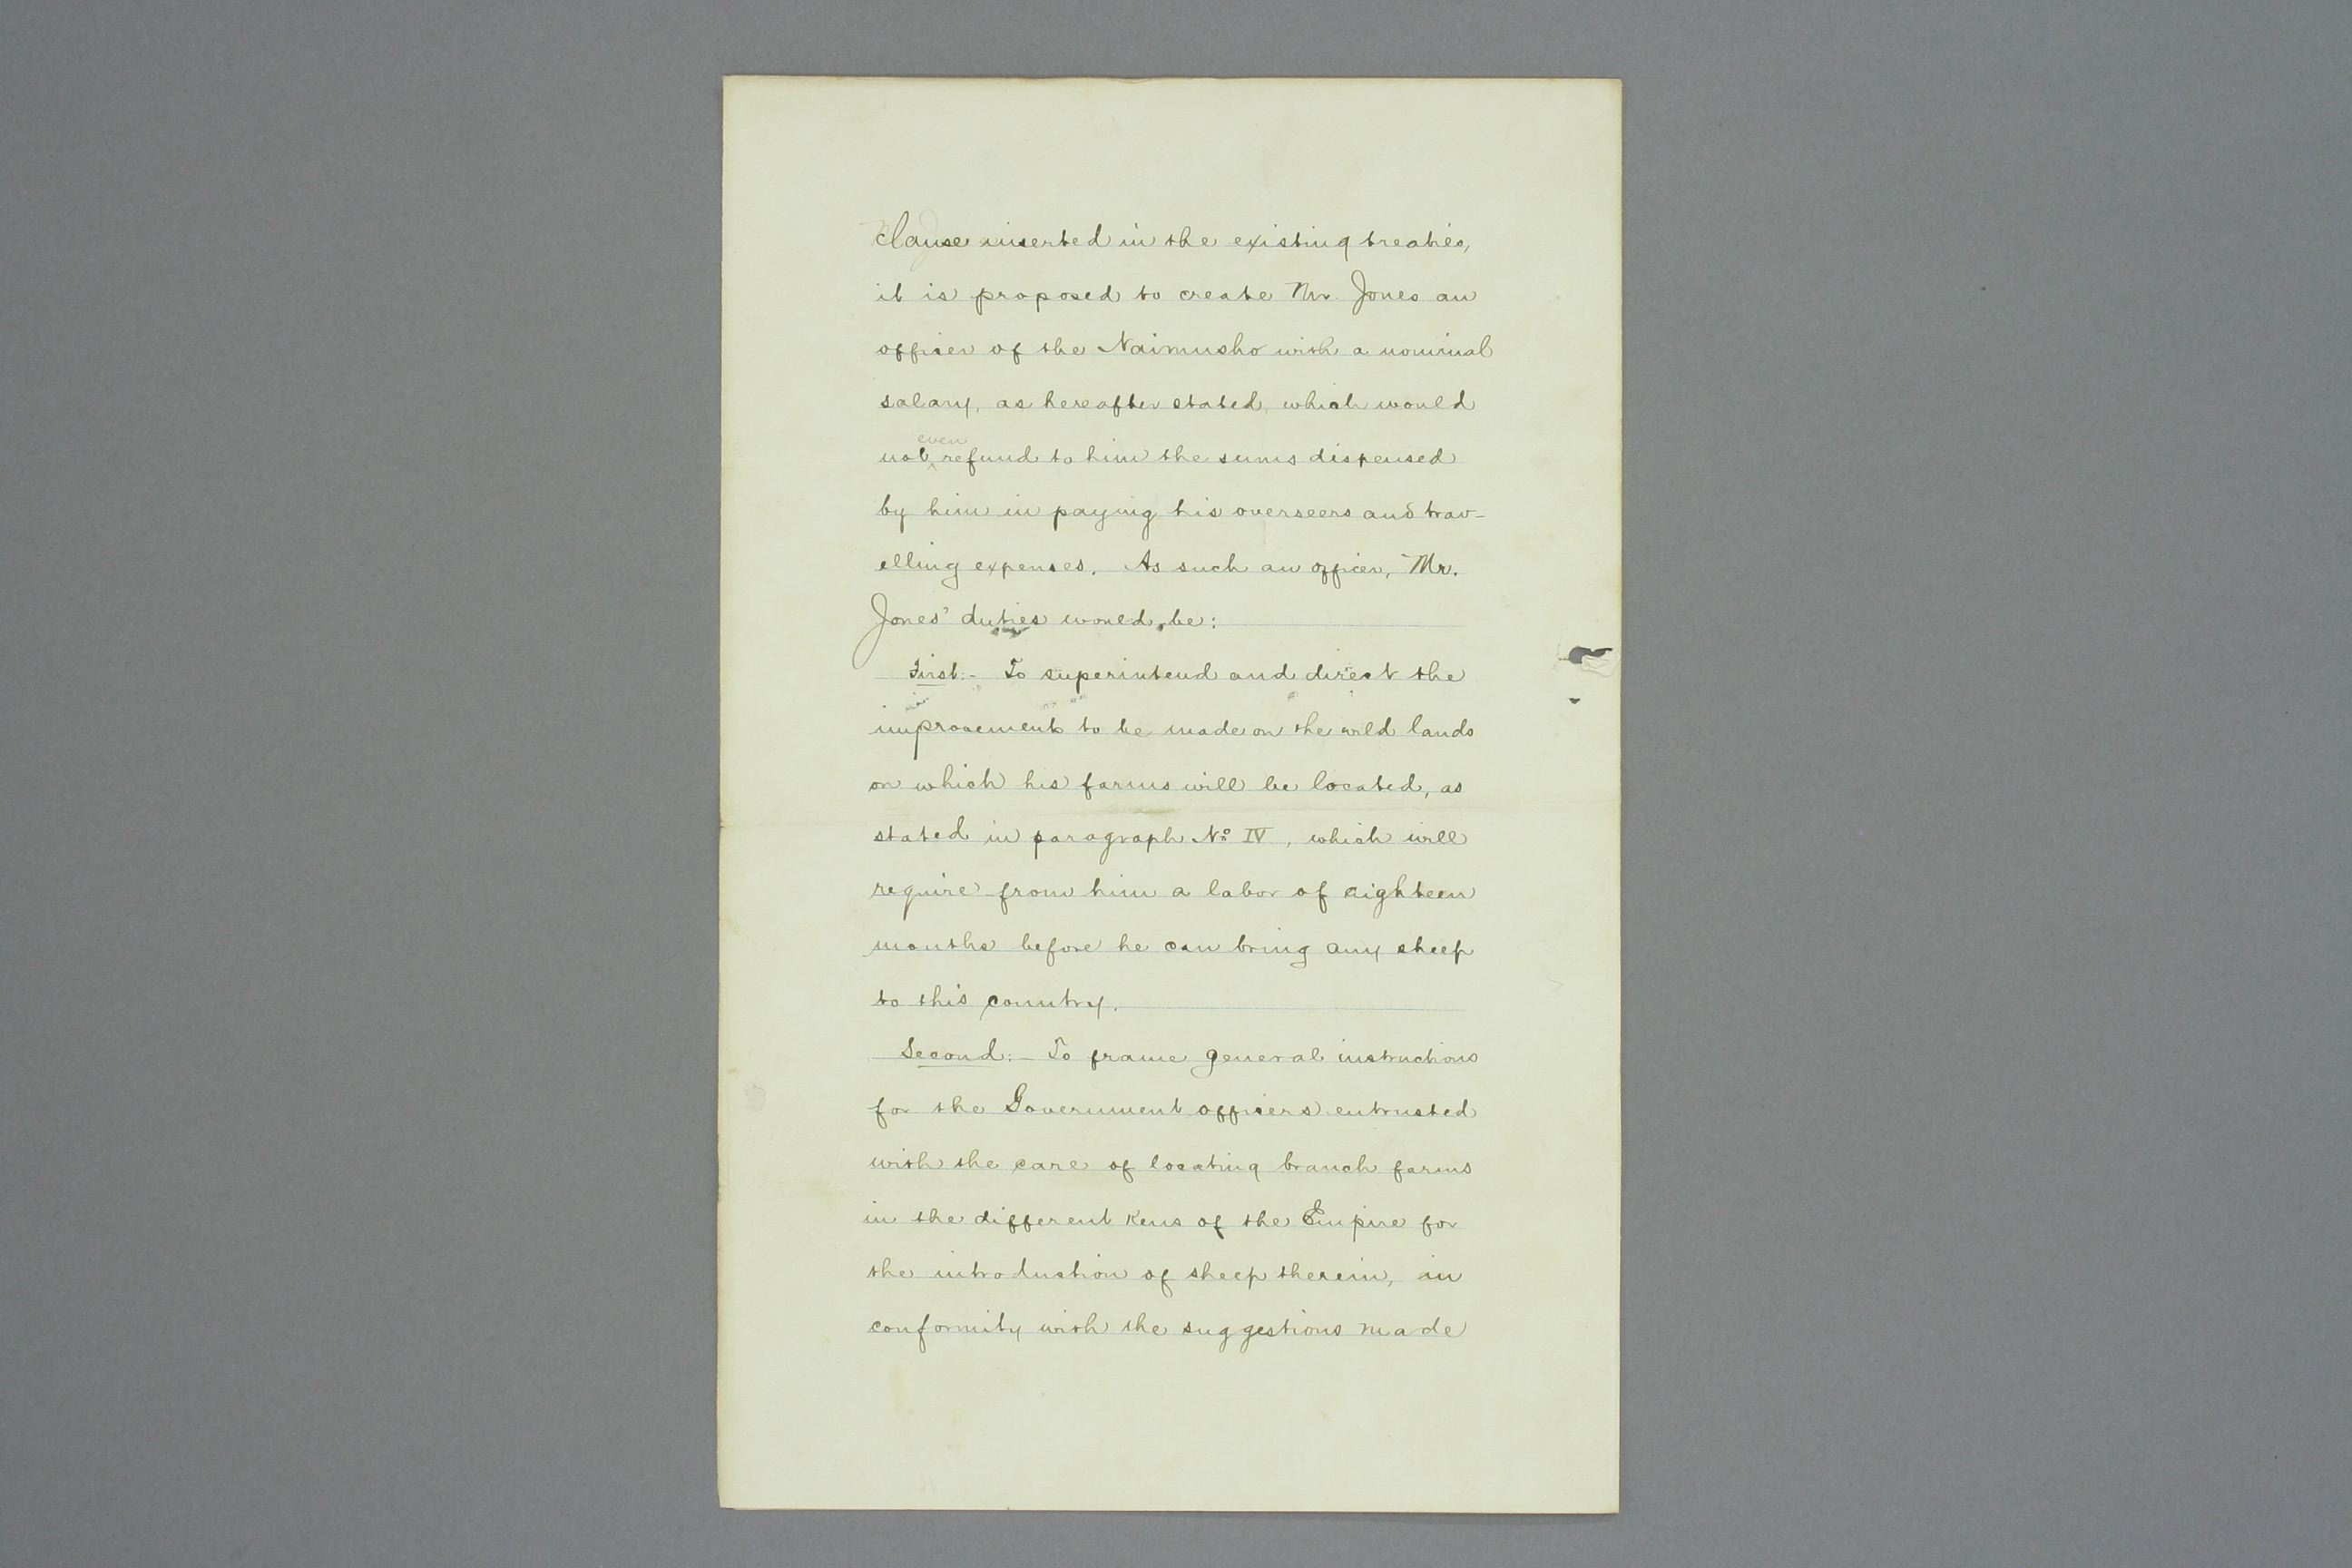 clause inserted in the existing treaties,
it is proposed to create Mr. Jones an
officer of the Naimusho with a nominal
salary, as hereafter stated, which would
even
not refund to him the sums dispensed
by him in paying his overseers and trav-
elling expenses. As such an officer, Mr.
Jones' duties would be:
First:- To superintend and direct the
improvements to be made on the wild lands
on which his farms will be located, as
stated in paragraph No IV, which will
require from him a labor of eighteen
months before he can bring any sheep
to this country.
Second:- To frame general instructions
for the Government officers entrusted
with the care of locating branch farms
in the different Kens of the Empire for
the introduction of sheep therein, in
conformity with the suggestions made